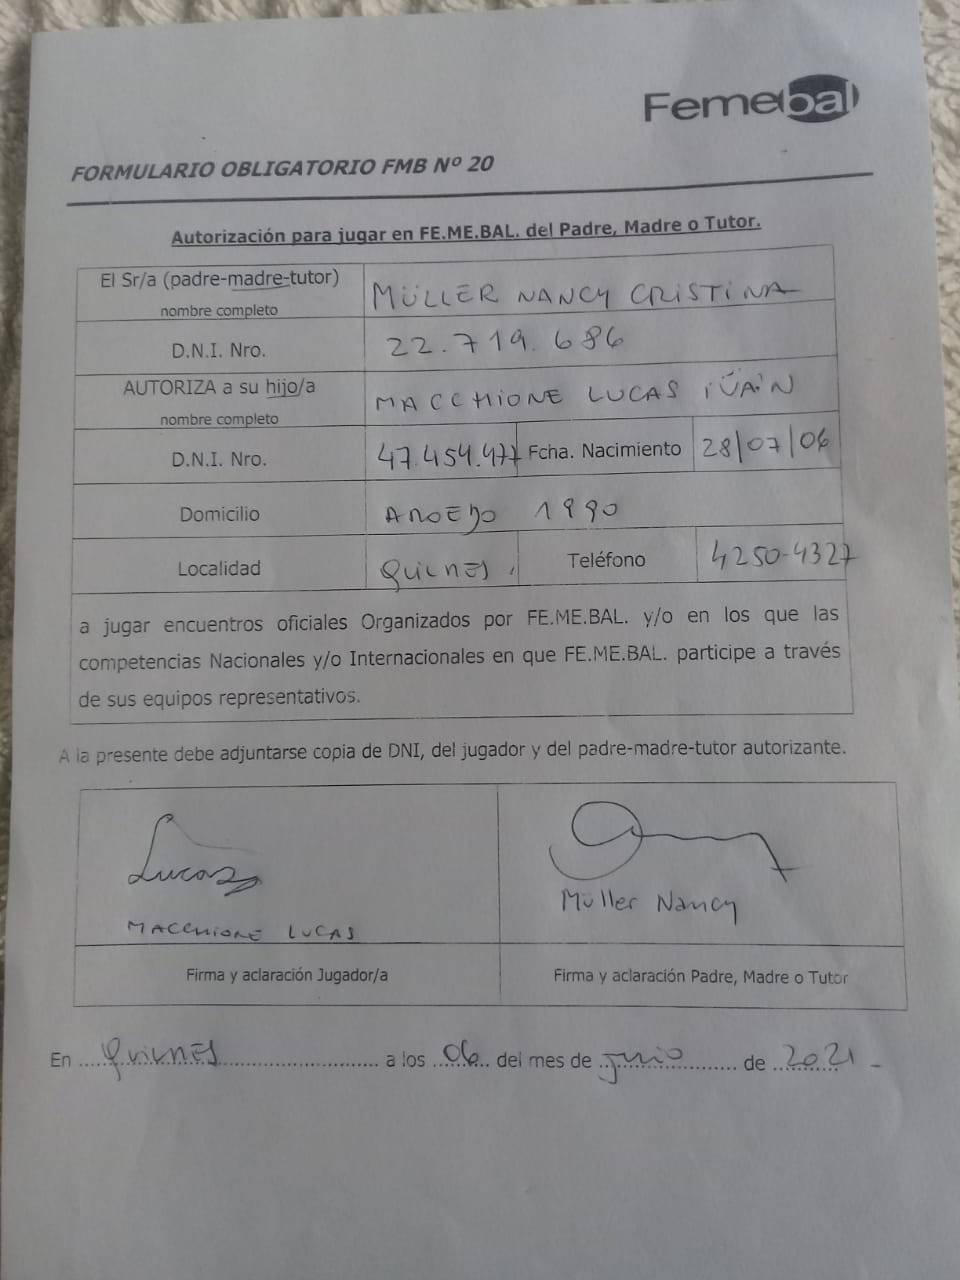 Femebal
FORMULARIO OBLIGATORIO FMB Nº 20
Autorización para jugar en FE.ME.BAL. del Padre, Madre o Tutor.
El Sr/a (padre-madre-tutor)
nombre completo
MÜLLER NANCY CRISTINA
D.N.I. Nro.
22.719.686
AUTORIZA a su hijo/a
nombre completo
MACCHIONE LUCAS
D.N.I. Nro.
47.454.477
Fcha. Nacimiento
28/07/06
Domicilio
1990
Localidad
QUILMES
Teléfono
4250-4327
a jugar encuentros oficiales Organizados por FE.ME.BAL. y/o en los que las
competencias Nacionales y/o Internacionales en que FE.ME.BAL. participe a través
de sus equipos representativos.
A la presente debe adjuntarse copia de DNI, del jugador y del padre-madre-tutor autorizante.
Lucas
MACCHIONE LUCAS
Müller Nancy
Firma y aclaración Jugador/a
Firma y aclaración Padre, Madre o Tutor
En Quilmes a los 06 del mes de junio de 2021